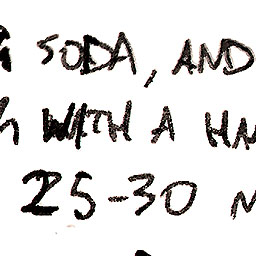 SODA, AND
WITH A
25-30